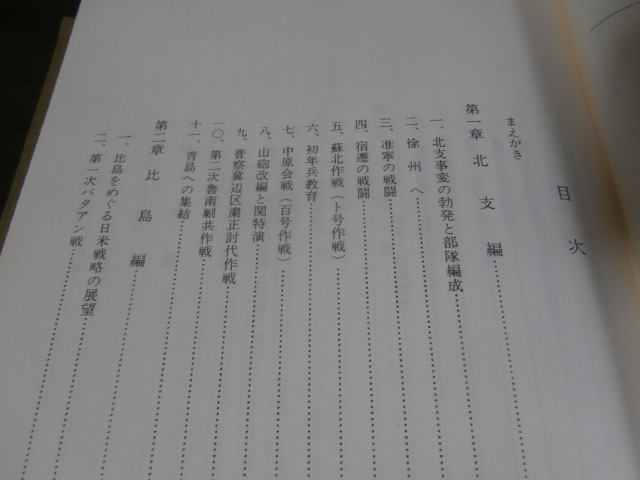 目次
まえがき
第一章 北支編
一、北支事変の勃発と部隊編成
二、徐州へ
三、淮寧の戦闘
四、宿遷の戦闘
五、蘇北作戦（ト号作戦）
六、初年兵教育
七、中原会戦（百号作戦）
八、山砲改編と関特演
九、晋察冀辺区粛正討伐作戦
一〇、第二次魯南剿共作戦
十一、青島への集結
第二章 比島編
一、比島をめぐる日米戦略の展望
二、第一次バタアン戦